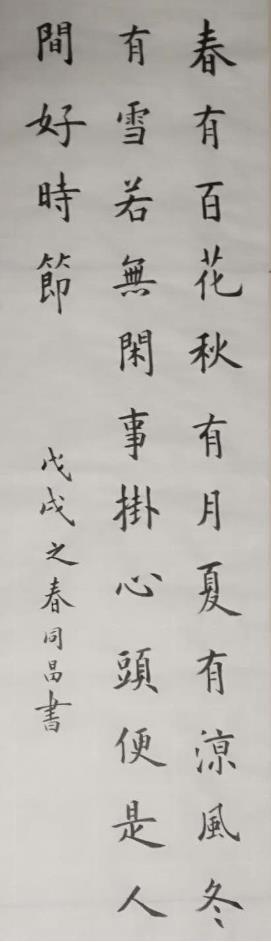 春有百花秋有月夏有涼風冬
有雪若無閑事掛心頭便是人
間好時節
戊戌之春同昌書